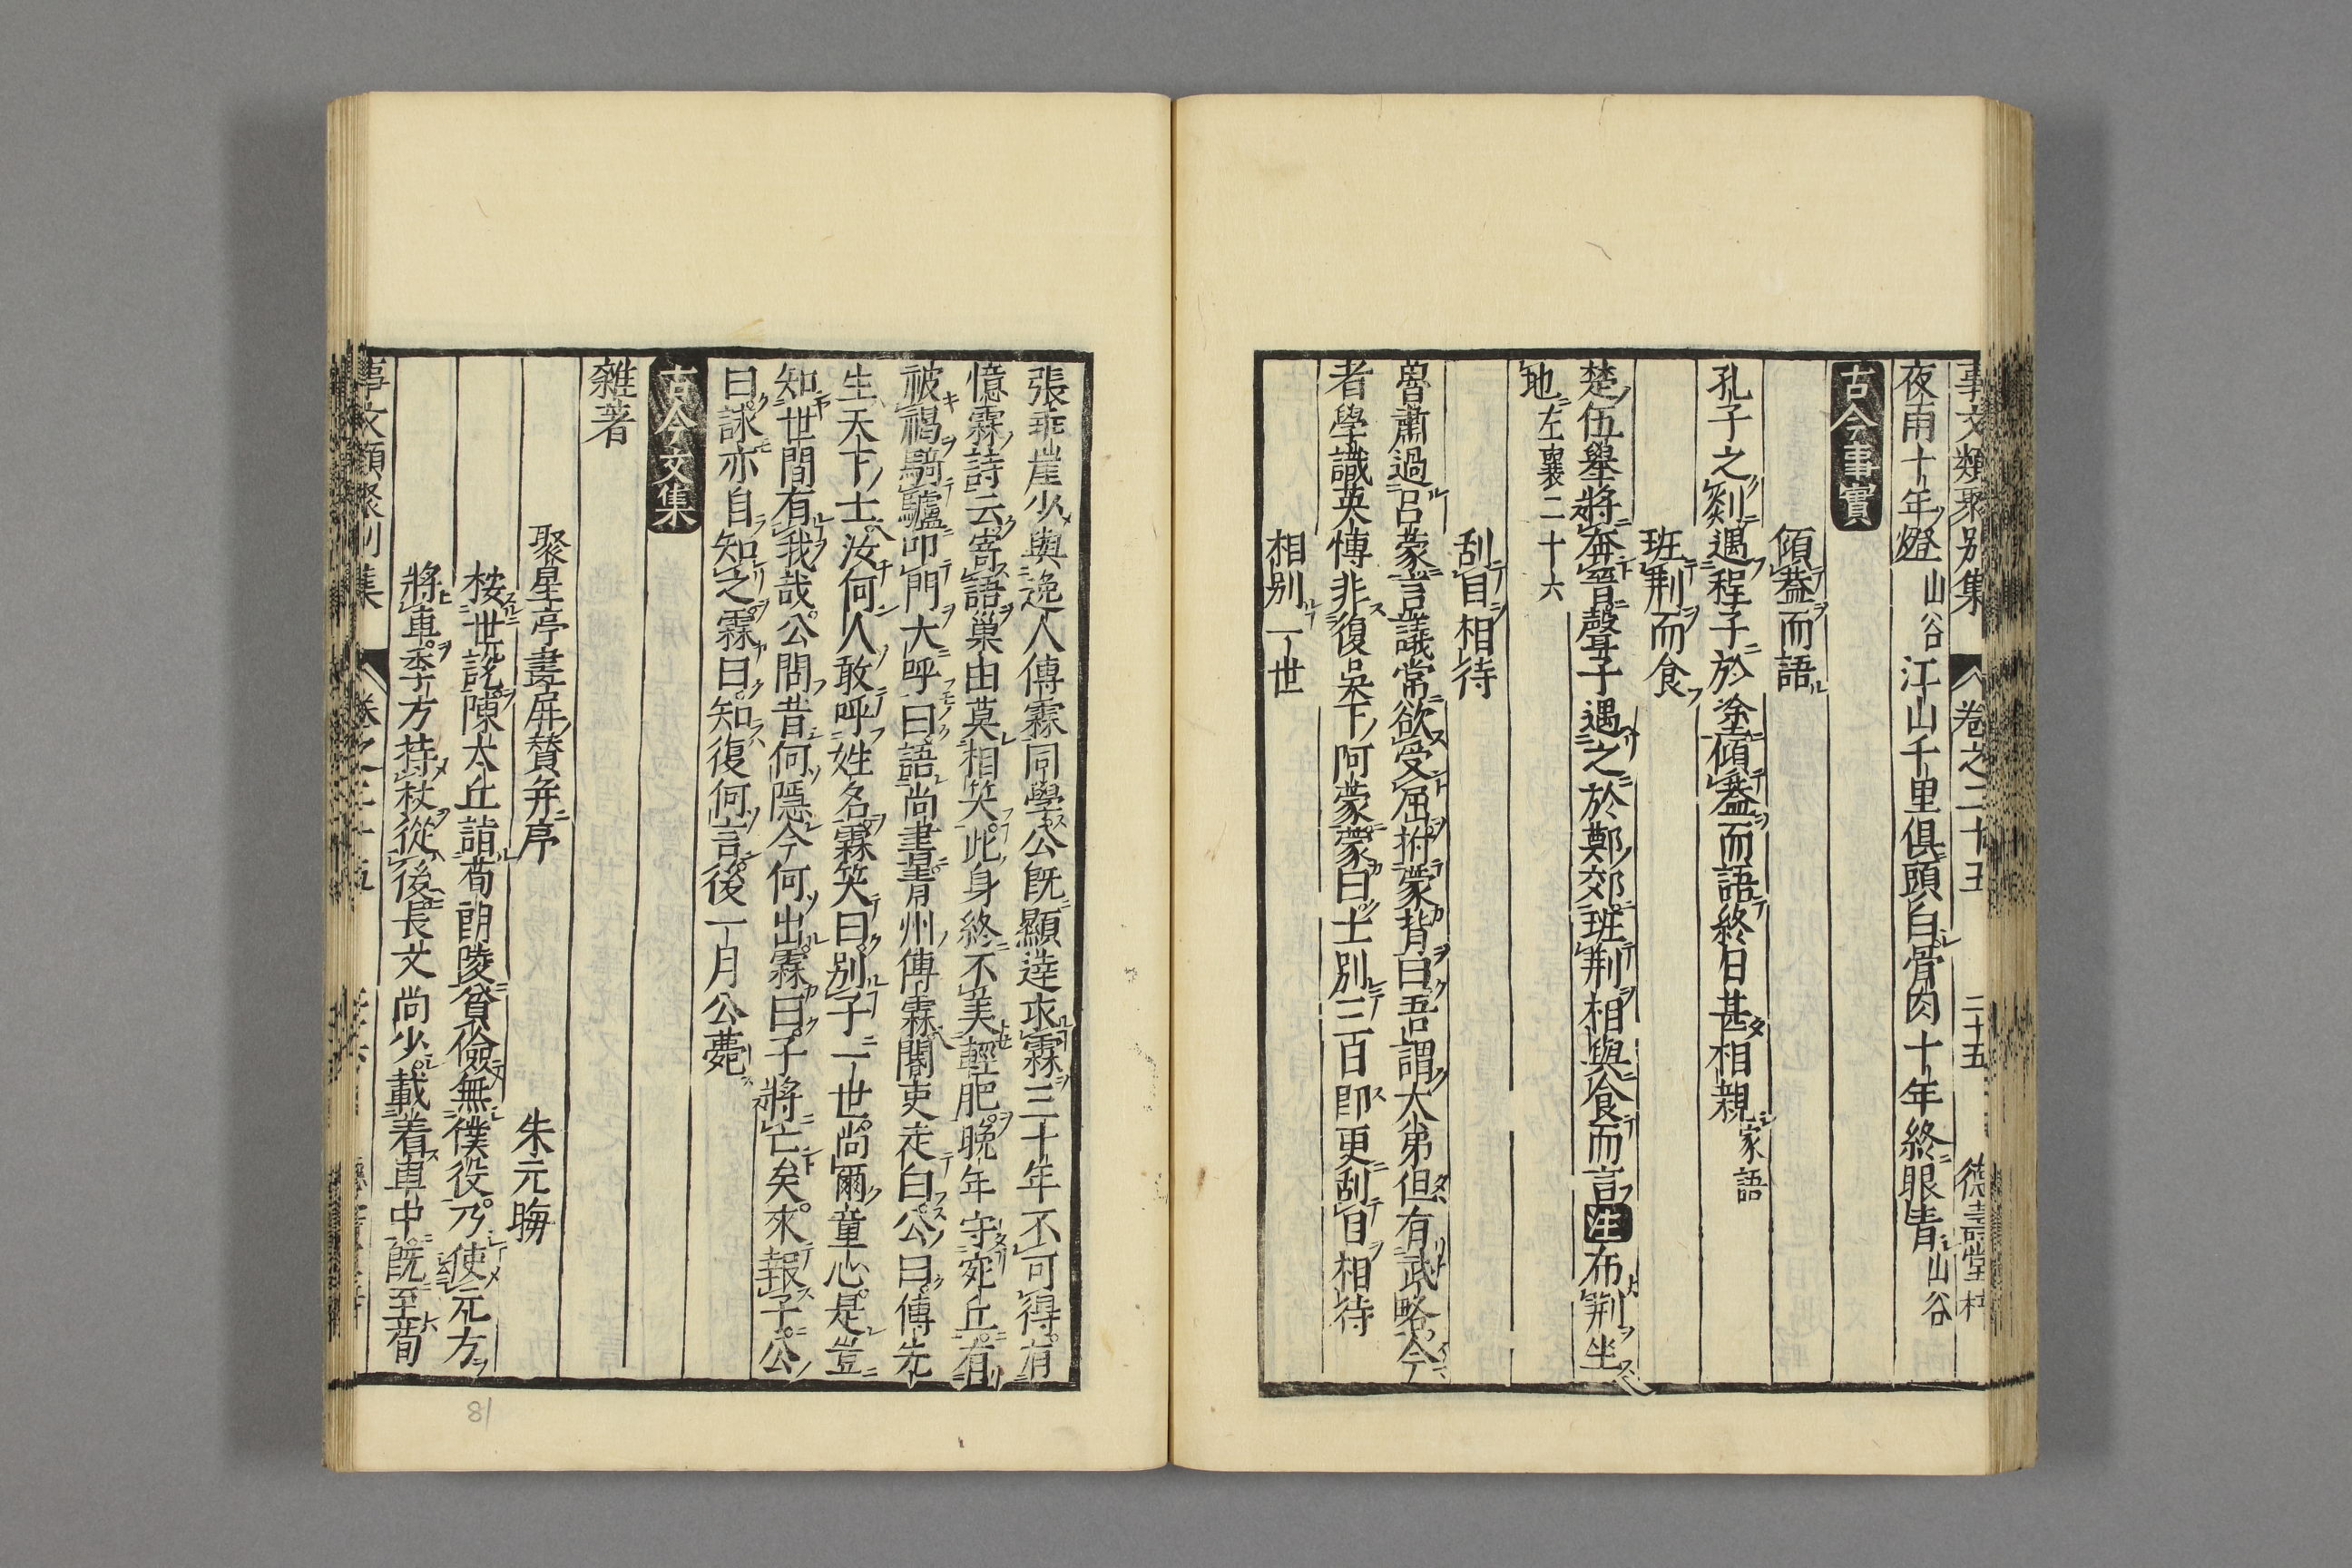 事文類聚別集 卷之二十五 二十五 德壽堂梓
夜雨十年燈山谷江山千里俱頭白骨肉十年終眼青山谷
古今事實
傾蓋而語
孔子之剡遇程子於塗傾蓋而語終日甚相親家語
班荆而食
楚伍舉將奔晉聲子遇之於鄭郊班荆相與食而言注布荆坐
地左襄二十六
刮目相待
魯肅過呂蒙言議常欲受屈拊蒙背曰吾謂大弟但有武略今
者學識英博非復吳下阿蒙蒙曰士別三百即更刮目相待
相別一世
張乖崖少與逸人傅霖同學公既顯達求霖三十年不可得有
憶霖詩云寄語巢由莫相笑此身終不美輕肥晚年守宛丘有
被褐騎驢叩門大呼曰語尚書青州傅霖閽吏走白公曰傅先
生天下士汝何人敢呼姓名霖笑曰別子一世尚爾童心是豈
知世間有我哉公問昔何隱今何出霖曰子將亡矣來報子公
曰詠亦自知之霖曰知復何言後一月公薨
古今文集
雜著
聚星亭畫屏贊并序 朱元晦
按世說陳太丘詣荀朗陵貧儉無僕役乃使元方
將車季方持杖從後長文尚少載着車中既至荀
事文類聚別集 卷之二十五